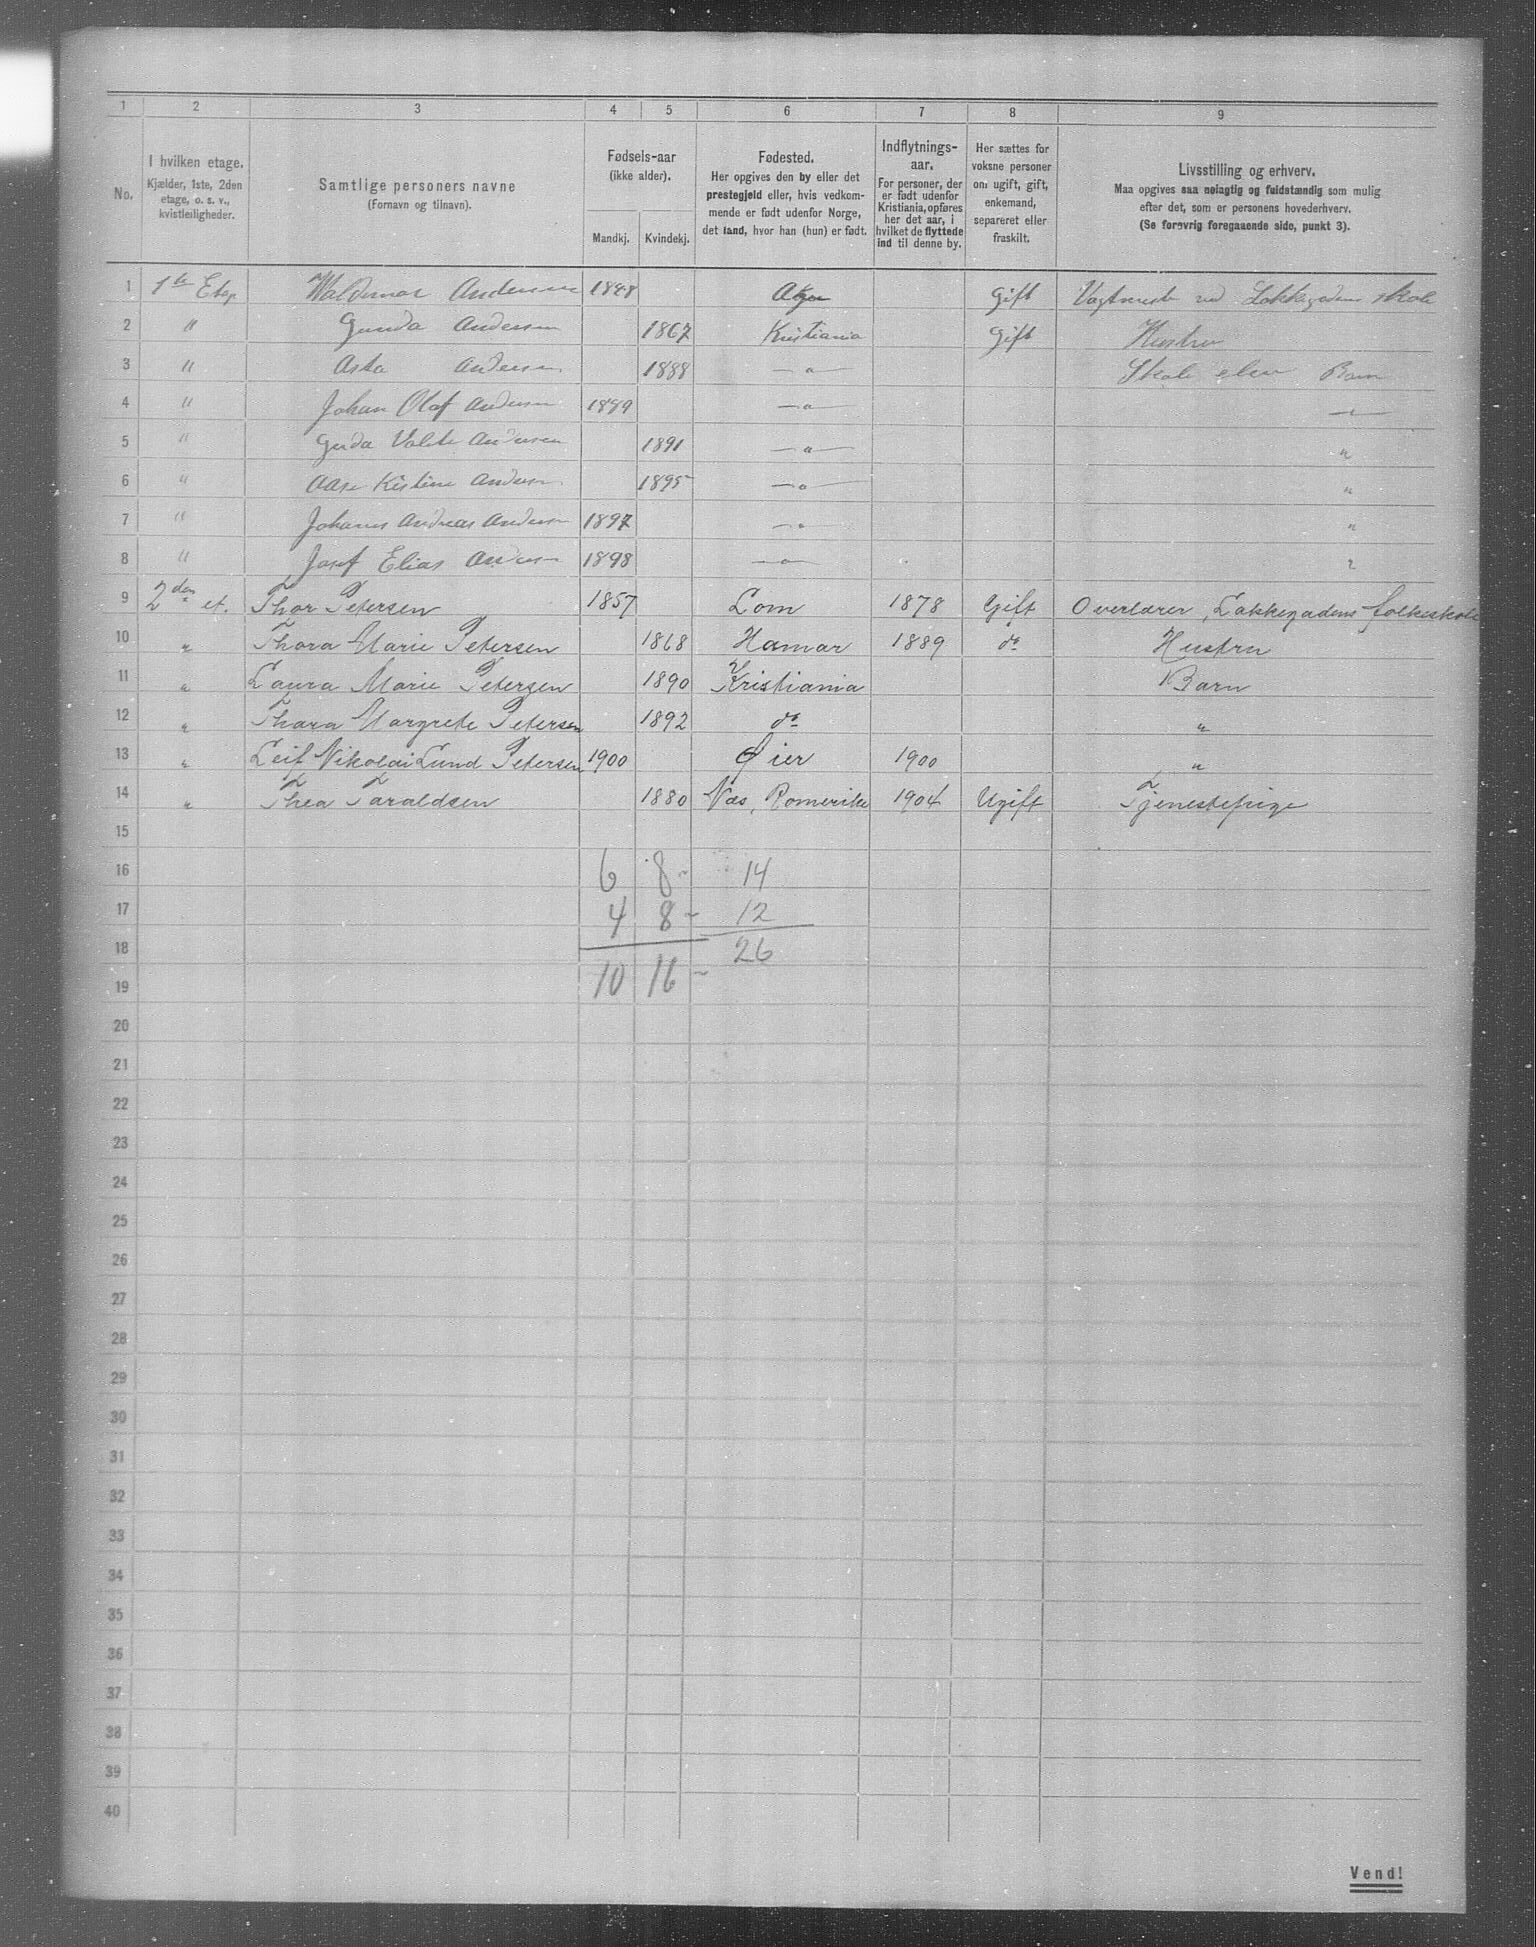 1 2 3 4 5 6 7 8 9
No.
I hvilken etage.
Kjælder, 1ste, 2den
etage, o. s. v.,
kvistleiligheder.
Samtlige personers navne
(Fornavn og tilnavn).
Fødsels-aar
(ikke alder).
Mandkj. Kvindekj.
Fødested.
Her opgives den by eller det
prestegjeld eller, hvis vedkom-
mende er født udenfor Norge,
det land, hvor han (hun) er født.
Indflytnings-
aar.
For personer, der
er født udenfor
Kristiania, opføres
her det aar, i
hvilket de flyttede
ind til denne by.
Her sættes for
voksne personer
om ugift, gift,
enkemand,
separeret eller
fraskilt.
Livsstilling og erhverv.
Maa opgives saa nøiagtig og fuldstændig som mulig
efter det, som er personens hovederhverv.
(Se forøvrig foregaaende side, punkt 3).
1 1ste Etag Waldemar Andersen 1848 Aker Gift Vagtmester ved Lakkegadens skole
2 " Gunda Andersen 1867 Kristiania Gift Hustru
3 " Asta Andersen 1888 —"— Skole elev Barn
4 " Johan Olaf Andersen 1889 —"— —"—
5 " Gerda Andersen 1891 —"— "
6 " Aase Kistine Andersen 1895 —"— "
7 " Johannes Andreas Andersen 1897 —"— "
8 " Josef Elias Andersen 1898 —"— "
9 2den et. Thor Petersen 1857 Lom 1878 Gift Overlærer, Lakkegadens folkeskole
10 " Thora Marie Petersen 1868 Hamar 1889 do Hustru
11 " Laura Marie Petersen 1890 Kristiania Barn
12 " Thora Margrete Petersen 1892 do "
13 " Leif Nikolai Lund Petersen 1900 Øier 1900 "
14 " Thea Taraldsen 1880 Næs, Romerike 1904 Ugift Tjenestepige
15
16 6 8 - 14
17 4 8 - 12
18 26
19 10 16 -
20
21
22
23
24
25
26
27
28
29
30
31
32
33
34
35
36
37
38
39
40
Vend!